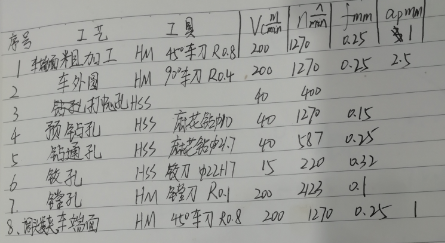 序号 工艺 工具 Vc m/min n n/min f mm ap mm
1 车端面粗加工 HM 45°车刀 R0.8 200 1270 0.25 1
2 车外圆 HM 90°车刀 R0.4 200 1270 0.25 2.5
3 钻孔打中心孔 HSS 40 400
4 预钻孔 HSS 麻花钻φ10 40 1270 0.15
5 钻通孔 HSS 麻花钻φ21.7 40 587 0.25
6 铰孔 HSS 铰刀 φ22H7 15 220 0.32
7 镗孔 HM 镗刀 R0.1 200 2123 0.1
8、 车端面 HM 45°车刀 R0.8 200 1270 0.25 1